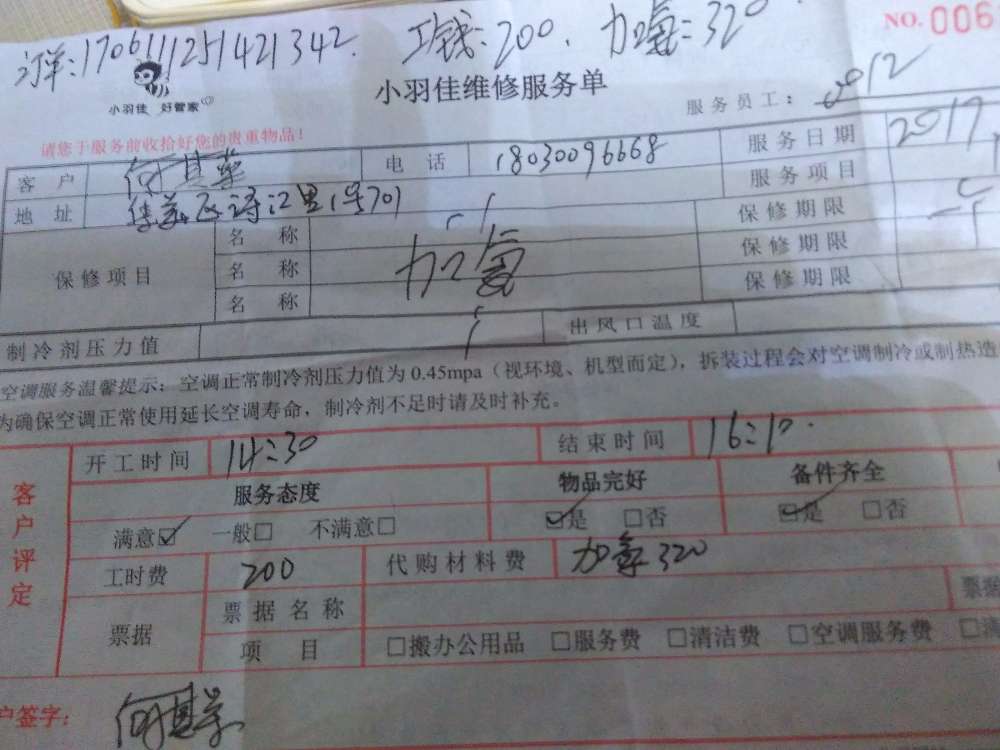 订单:1706111251421342. 工钱:200. 加氟:320 NO.006
小羽佳 好管家
小羽佳维修服务单
服务员工: 0912
请您于服务前收拾好您的贵重物品!
客户 何其 电话 18030096668 服务日期 2017
地址 集美区诗江里1号701 服务项目
保修项目 名称 加氟 保修期限
名称 保修期限
名称 保修期限
制冷剂压力值 出风口温度
空调服务温馨提示:空调正常制冷剂压力值为 0.45mpa(视环境、机型而定),拆装过程会对空调制冷或制热造
为确保空调正常使用延长空调寿命,制冷剂不足时请及时补充。
客户评定 开工时间 14:30 结束时间 16:10.
服务态度 物品完好 备件齐全
满意☑ 一般□ 不满意□ ☑是 □否 ☑是 □否
工时费 200 代购材料费 加氟320
票据 票据名称 票据
项目 □搬办公用品 □服务费 □清洁费 □空调服务费
户签字: 何其